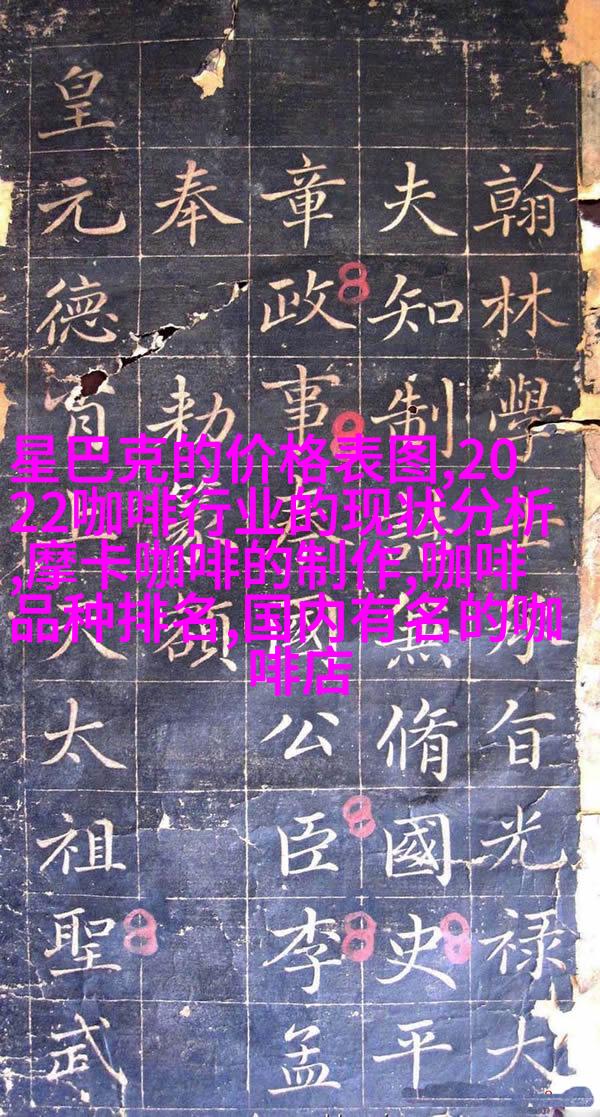 星巴克的价格表图,20
22咖啡行业的现状分析
,摩卡咖啡的制作,咖啡
品种排名,国内有名的咖
啡店
翰林學士承旨光禄大
夫知制誥兼脩國史平
章政事國公臣李孟
奉敕篆額
皇元德太祖聖武